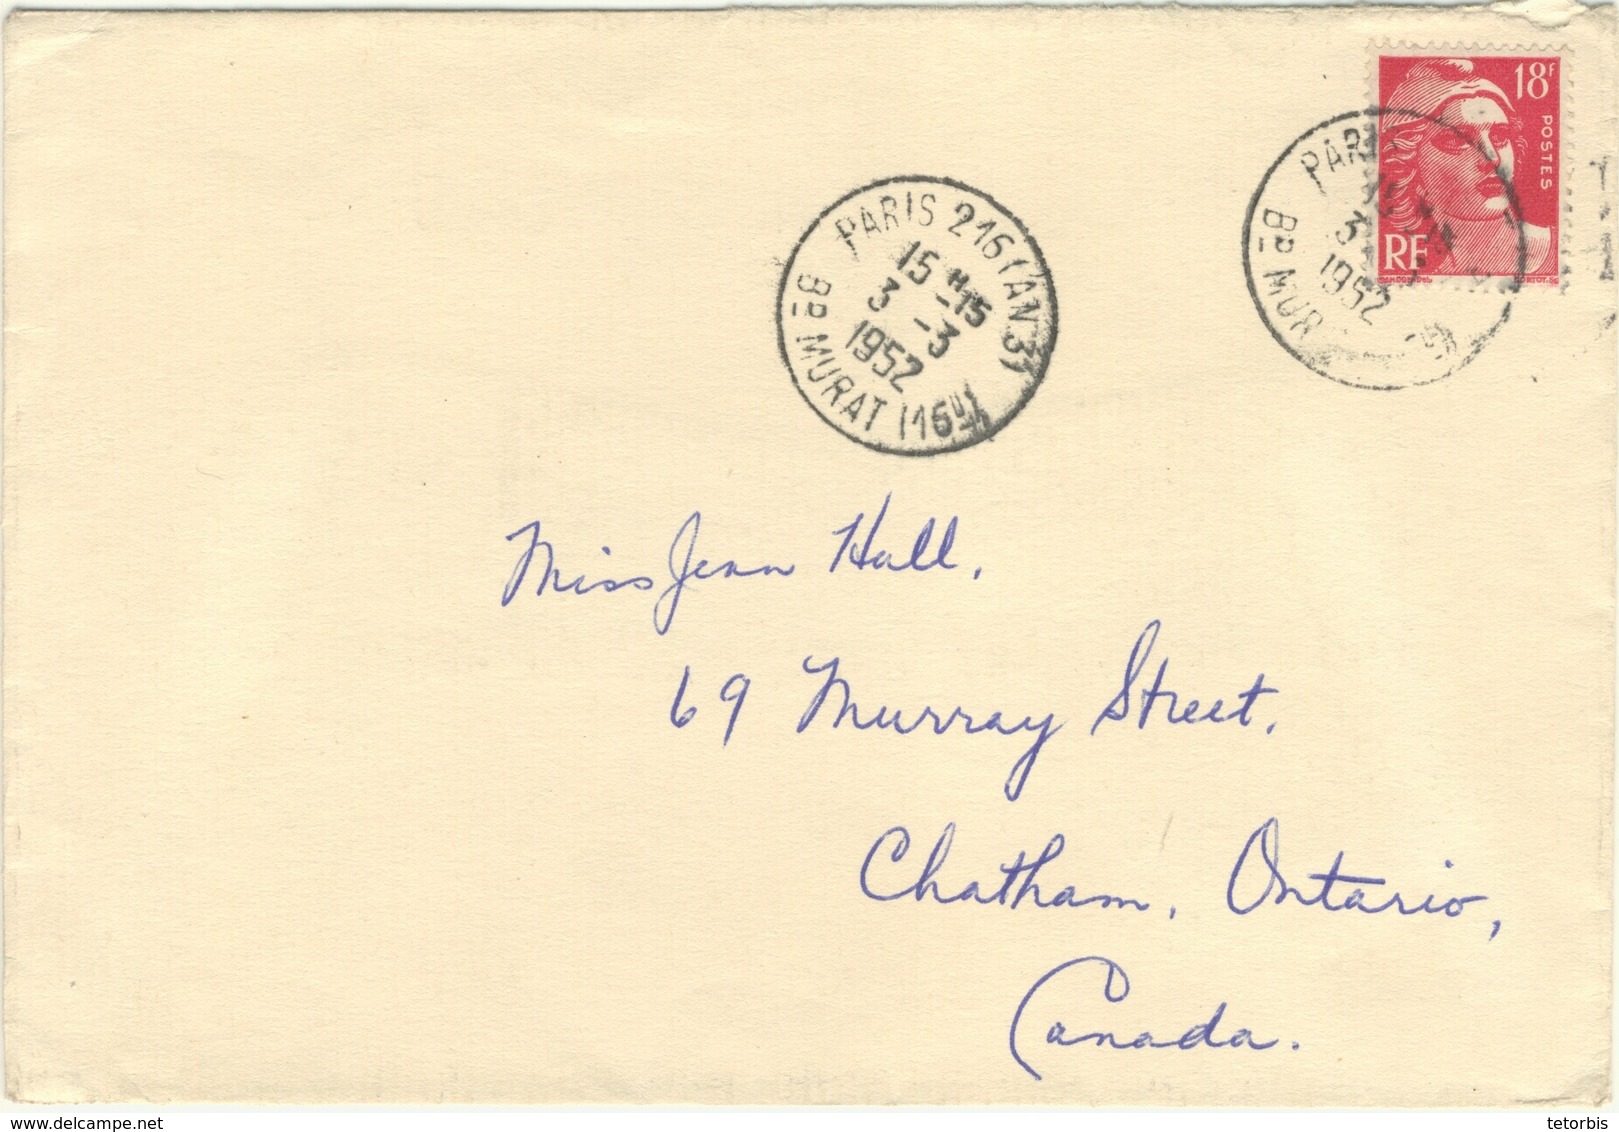 18F
POSTES
RF
PARIS 216 (AN 3)
15 H 15
3 - 3
1952
BD MURAT (16E)
PARIS
3
1952
BD MUR
Miss Jean Hall,
69 Murray Street,
Chatham, Ontario,
Canada.
www.delcampe.net
tetorbis